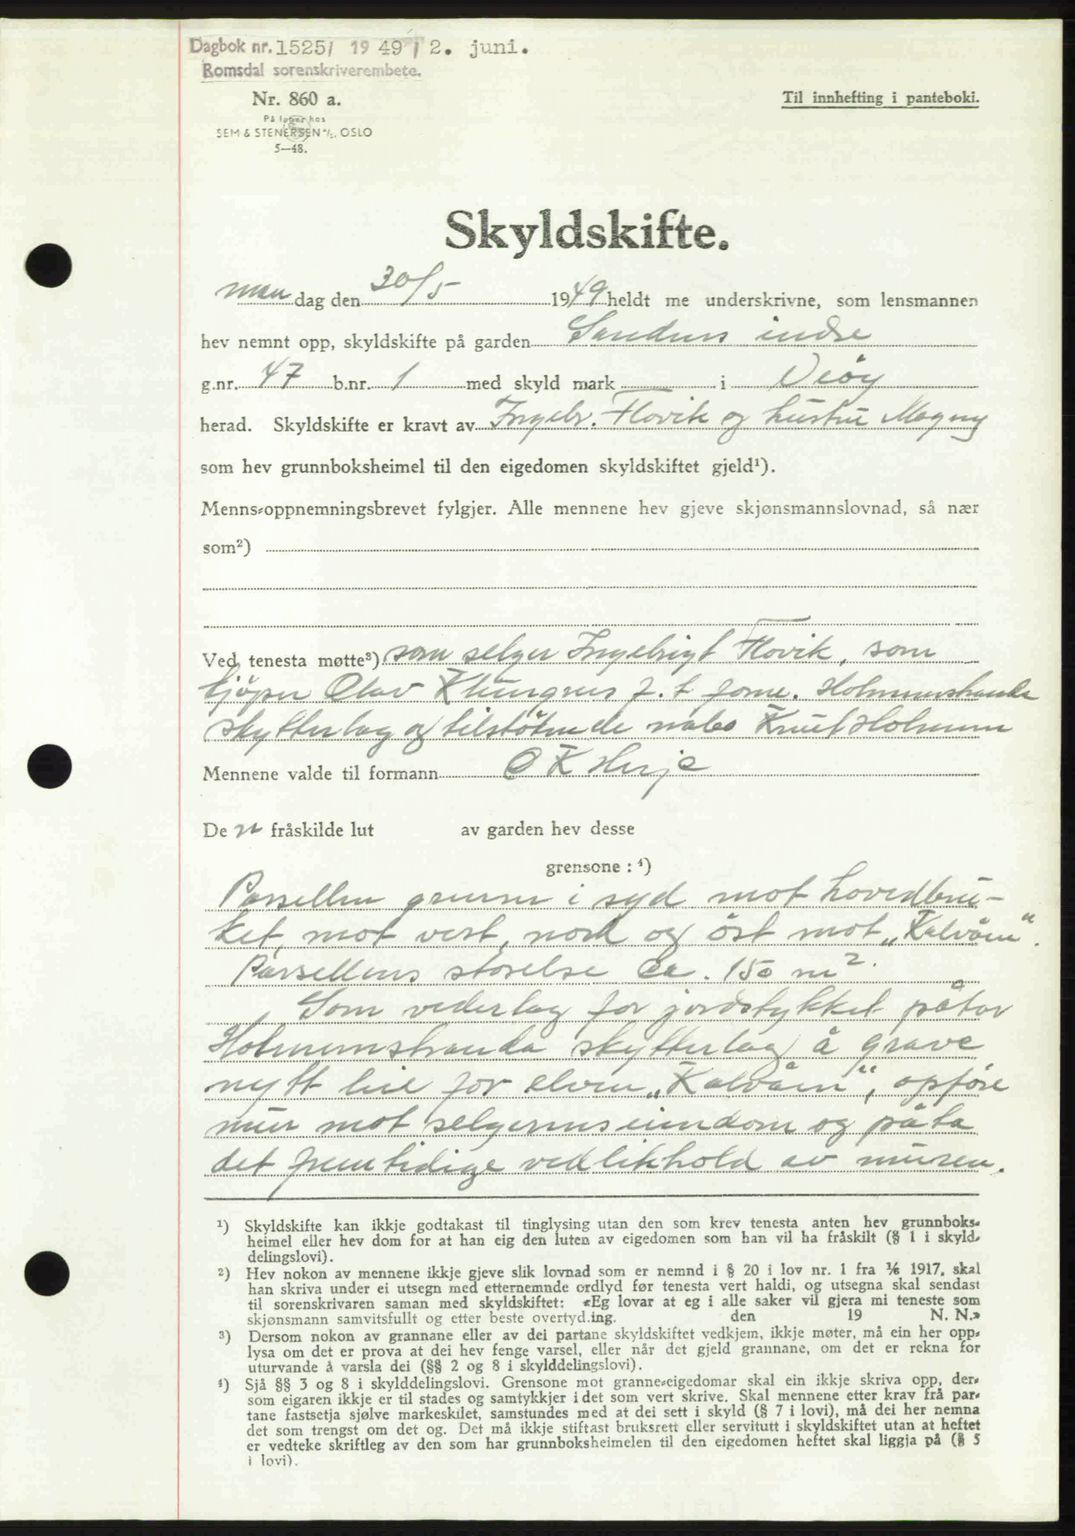 Dagbok nr. 1525/ 1949 / 2. juni.
Romsdal sorenskriverembete.
Nr. 860 a.
Til innhefting i panteboki.
På lager hos
SEM & STENERSEN A/S, OSLO
5—48.
Skyldskifte.
man dag den 30/5 1949 heldt me underskrivne, som lensmannen
hev nemnt opp, skyldskifte på garden Sandnes indre
g.nr. 47 b.nr. 1 med skyld mark i Veöy
herad. Skyldskifte er kravt av Ingebr. Flovik og hustru Magny
som hev grunnboksheimel til den eigedomen skyldskiftet gjeld¹).
Menns-oppnemningsbrevet fylgjer. Alle mennene hev gjeve skjønsmannslovnad, så nær
som²)
Ved tenesta møtte³) som selger Ingebrigt Flovik, som
kjöper Olav Klungnes f. t. form. Holmemstranda
skytterlag og tilstötende nabo Knut Holmem
Mennene valde til formann O K Herje
De n fråskilde lut av garden hev desse
grensone : ⁴)
Parsellen grenser i syd mot hovedbru-
ket, mot vest, nord og öst mot „Kalvåen“.
Parsellens storelse ca. 150 m².
Som vederlag for jordstykket påtar
Holmemstranda skytterlag å grave
nytt leie for elven „Kalvåen“, opföre
mur mot selgerens eiendom og påta
det fremtidige vedlikhold av muren.
¹) Skyldskifte kan ikkje godtakast til tinglysing utan den som krev tenesta anten hev grunnboks-
heimel eller hev dom for at han eig den luten av eigedomen som han vil ha fråskilt (§ 1 i skyld-
delingslovi).
²) Hev nokon av mennene ikkje gjeve slik lovnad som er nemnd i § 20 i lov nr. 1 fra 1/6 1917, skal
han skriva under ei utsegn med etternemnde ordlyd før tenesta vert haldi, og utsegna skal sendast
til sorenskrivaren saman med skyldskiftet: «Eg lovar at eg i alle saker vil gjera mi teneste som
skjønsmann samvitsfullt og etter beste overtyding. den 19 N. N.»
³) Dersom nokon av grannane eller av dei partane skyldskiftet vedkjem, ikkje møter, må ein her opp-
lysa om det er prova at dei hev fenge varsel, eller når det gjeld grannane, om det er rekna for
uturvande å varsla dei (§§ 2 og 8 i skylddelingslovi).
⁴) Sjå §§ 3 og 8 i skylddelingslovi. Grensone mot granne-eigedomar skal ein ikkje skriva opp, der-
som eigaren ikkje er til stades og samtykkjer i det som vert skrive. Skal mennene etter krav frå par-
tane fastsetja sjølve markeskilet, samstundes med at dei sett i skyld (§ 7 i lovi), må dei her nemna
det som trengst om det og. Det må ikkje stiftast bruksrett eller servitutt i skyldskiftet utan at heftet
er vedteke skriftleg av den som har grunnboksheimelen til den eigedomen heftet skal liggja på (§ 5
i lovi).